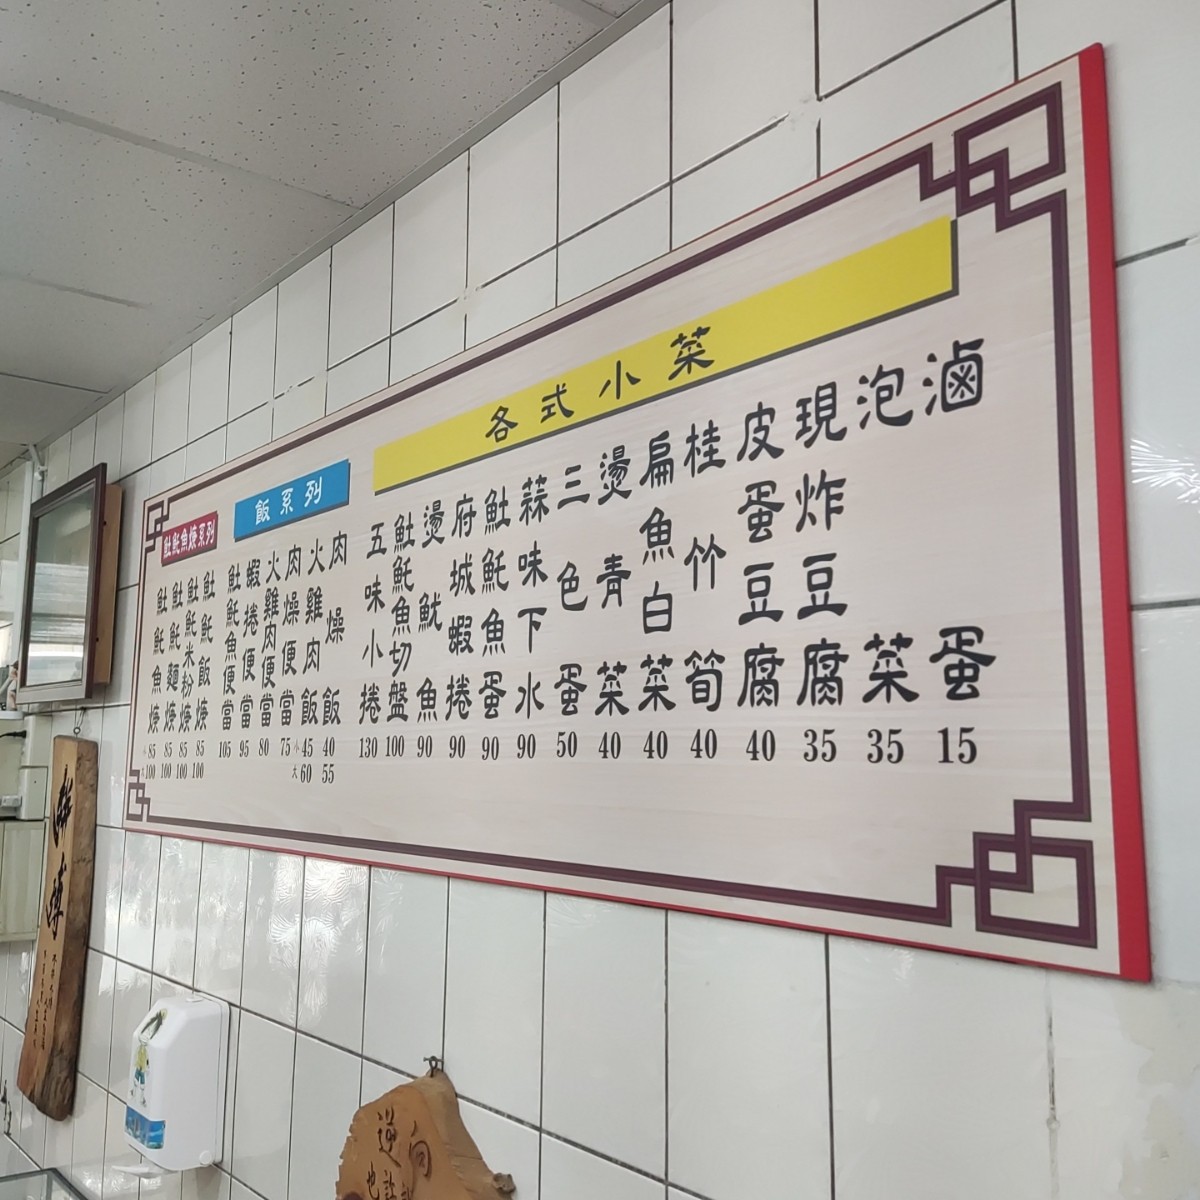 各式小菜
滷蛋 15
泡菜 35
現炸豆腐 35
皮蛋豆腐 40
桂竹筍 40
扁魚白菜 40
燙青菜 40
三色蛋 50
蒜味下水 90
𩵚魠魚蛋 90
府城蝦捲 90
燙魷魚 90
𩵚魠魚切盤 100
五味小捲 130
飯系列
肉燥飯 40 55
火雞肉飯 小45 大60
肉燥便當 75
火雞肉便當 80
蝦捲便當 95
𩵚魠魚便當 105
𩵚魠魚焿系列
𩵚魠飯焿 85 100
𩵚魠米粉焿 85 100
𩵚魠麵焿 85 100
𩵚魠魚焿 小85 大100
逆向